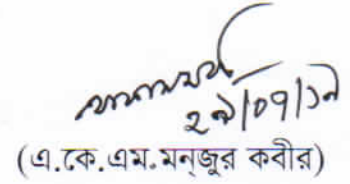 ২৯/০৭/১৯
(এ.কে.এম.মনজুর কবীর)